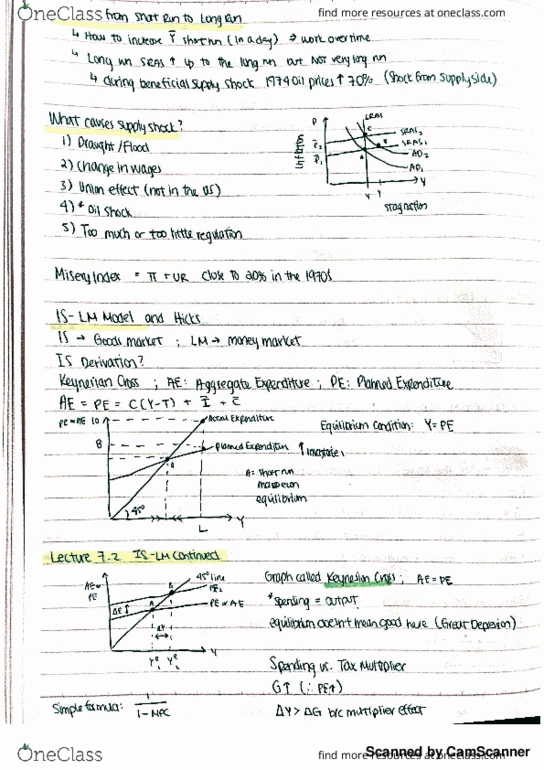 OneClass
find more resources at oneclass.com
from short Run to Long Run
↳ How to increase Ȳ short run (in a day) ⇒ work overtime
↳ Long run SRAS ↑ up to the long run but not very long run
↳ during beneficial supply shock 1974 oil prices ↑ 70% (Shock from supply side)
What causes supply shock?
1) Draught/Flood
2) Change in wages
3) Union effect (not in the US)
4)* Oil shock
5) Too much or too little regulation
P
LRAS
SRAS2
SRAS1
AD2
AD1
Inflation
P2
P1
C
B
A
Y
Y
Y
stagnation
Misery Index = π + UR Close to 20% in the 1970s
IS-LM Model and Hicks
IS → Goods market ; LM → money market
IS Derivation?
Keynesian Cross ; AE: Aggregate Expenditure ; PE: Planned Expenditure
AE = PE = C(Y-T) + Ī + Ḡ
PE = AE 10
Actual Expenditure
Equilibrium Condition: Y = PE
8
Planned Expenditure
A
A = short run
equilibrium
45°
L
Y
Lecture 7.2 IS-LM Continued
AE =
PE
45° line
PE2
PE = AE
B
A
ΔE
ΔY
Y1e Y2e
Y
Graph called Keynesian Cross ; AE = PE
*spending = output
equilibrium doesn't mean good here (Great Depression)
Spending vs. Tax Multiplier
G↑ (∴ PE↑)
Simple formula: 1
1 - MPC
ΔY > ΔG b/c multiplier effect
OneClass
find more resources at oneclass.com
Scanned by CamScanner